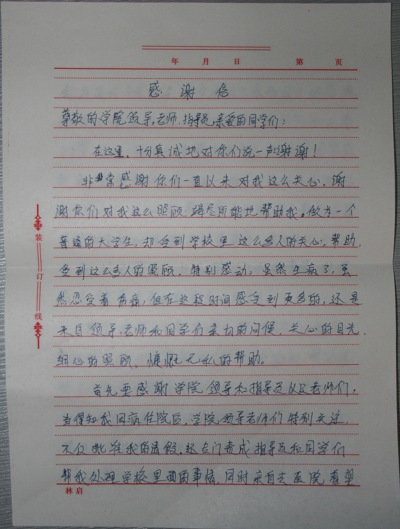 年 月 日 第 页
感谢信
尊敬的学院领导,老师,指导员,亲爱的同学们:
在这里,十分真诚地对你们说一声谢谢!
非常感谢你们一直以来对我这么关心,谢
谢你们对我这么照顾,竭尽所能地帮助我。做为一个
普通的大学生,却受到学校里这么多人的关心,帮助
受到这么多人的照顾,特别感动,虽然生病了,虽
然忍受着,但在这段时间感受到更多的,还是
来自领导老师和同学们亲切的问候,关心的目光
细心的照顾,慷慨无私的帮助。
首先要感谢学院领导和指导员以及老师们,
当得知我因病住院后,学院领导老师们特别关注,
不仅批准我的请假,还专门责成指导员和同学们
帮我处理学校里面的事情,同时亲自去医院看望
装订线
林启